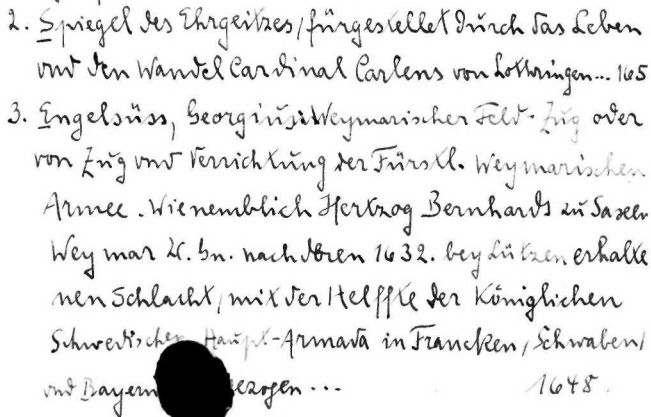 2. Spiegel des Ehrgeitzes/fürgestellet durch das Leben
vnd den Wandel Cardinal Carlens von Lothringen... 165
3. Engelsüss, Georgius: Weymarischer Feld-Zug oder
von Zug vnd Verrichtung der Fürstl. Weymarischen
Armee. Wie nemblich Hertzog Bernhards zu Saxen
Weymar nach deren 1632. bey Lützen erhalte
nen Schlacht, mit der Helffte der Königlichen
Schwedischen Haupt-Armada in Francken/Schwaben/
vnd Bayern ezogen... 1648.